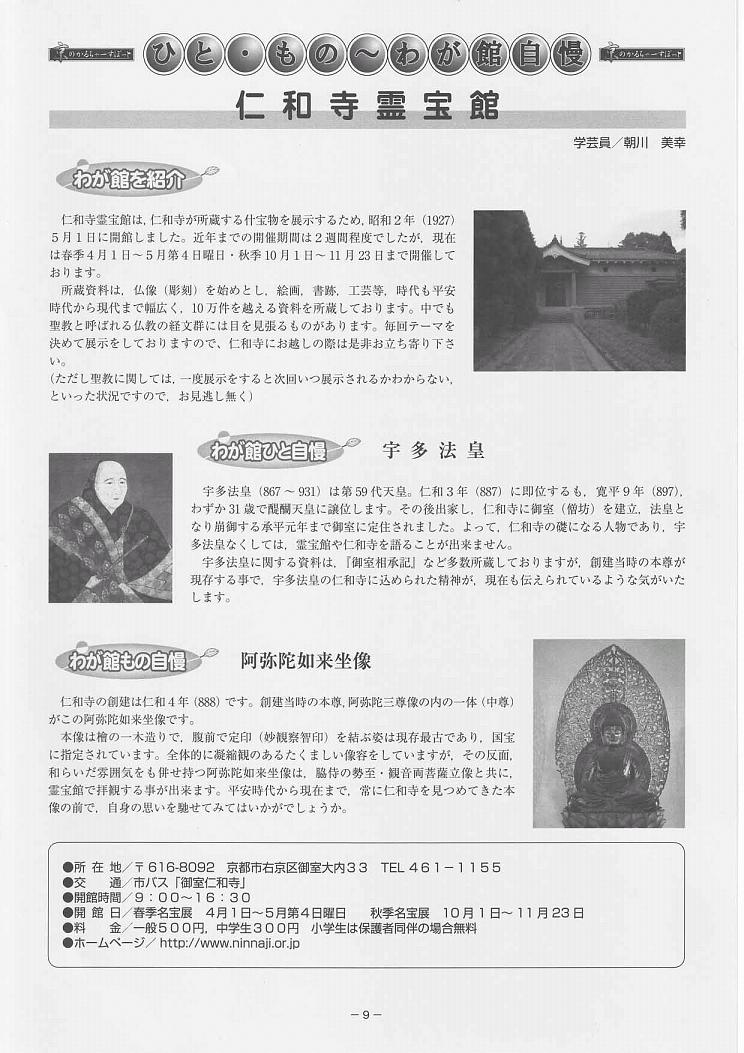 京のかるちゃーすぽっと
ひと・もの～わが館自慢
京のかるちゃーすぽっと
仁和寺霊宝館
学芸員／朝川　美幸
わが館を紹介
仁和寺霊宝館は，仁和寺が所蔵する什宝物を展示するため，昭和２年（1927）
５月１日に開館しました。近年までの開催期間は２週間程度でしたが，現在
は春季４月１日～５月第４日曜日・秋季10月１日～11月23日まで開催して
おります。
所蔵資料は，仏像（彫刻）を始めとし，絵画，書跡，工芸等，時代も平安
時代から現代まで幅広く，10万件を越える資料を所蔵しております。中でも
聖教と呼ばれる仏教の経文群には目を見張るものがあります。毎回テーマを
決めて展示をしておりますので、仁和寺にお越しの際は是非お立ち寄り下さ
い。
（ただし聖教に関しては，一度展示をすると次回いつ展示されるかわからない，
といった状況ですので，お見逃し無く）
わが館ひと自慢
宇多法皇
宇多法皇（867～931）は第59代天皇。仁和３年（887）に即位するも，寛平９年（897），
わずか31歳で醍醐天皇に譲位します。その後出家し，仁和寺に御室（僧坊）を建立，法皇と
なり崩御する承平元年まで御室に定住されました。よって，仁和寺の礎になる人物であり，宇
多法皇なくしては，霊宝館や仁和寺を語ることが出来ません。
宇多法皇に関する資料は，『御室相承記』など多数所蔵しておりますが，創建当時の本尊が
現存する事で，宇多法皇の仁和寺に込められた精神が，現在も伝えられているような気がいた
します。
わが館もの自慢
阿弥陀如来坐像
仁和寺の創建は仁和４年（888）です。創建当時の本尊，阿弥陀三尊像の内の一体（中尊）
がこの阿弥陀如来坐像です。
本像は檜の一木造りで，腹前で定印（妙観察智印）を結ぶ姿は現存最古であり，国宝
に指定されています。全体的に凝縮観のあるたくましい像容をしていますが，その反面，
和らいだ雰囲気をも併せ持つ阿弥陀如来坐像は，脇侍の勢至・観音両菩薩立像と共に，
霊宝館で拝観する事が出来ます。平安時代から現在まで，常に仁和寺を見つめてきた本
像の前で，自身の思いを馳せてみてはいかがでしょうか。
●所在地／〒616-8092　京都市右京区御室大内３３　TEL ４６１－１１５５
●交　通／市バス「御室仁和寺」
●開館時間／９：００～１６：３０
●開館日／春季名宝展　４月１日～５月第４日曜日　　秋季名宝展　１０月１日～１１月２３日
●料　金／一般５００円，中学生３００円　小学生は保護者同伴の場合無料
●ホームページ／ http://www.ninnaji.or.jp
－9－